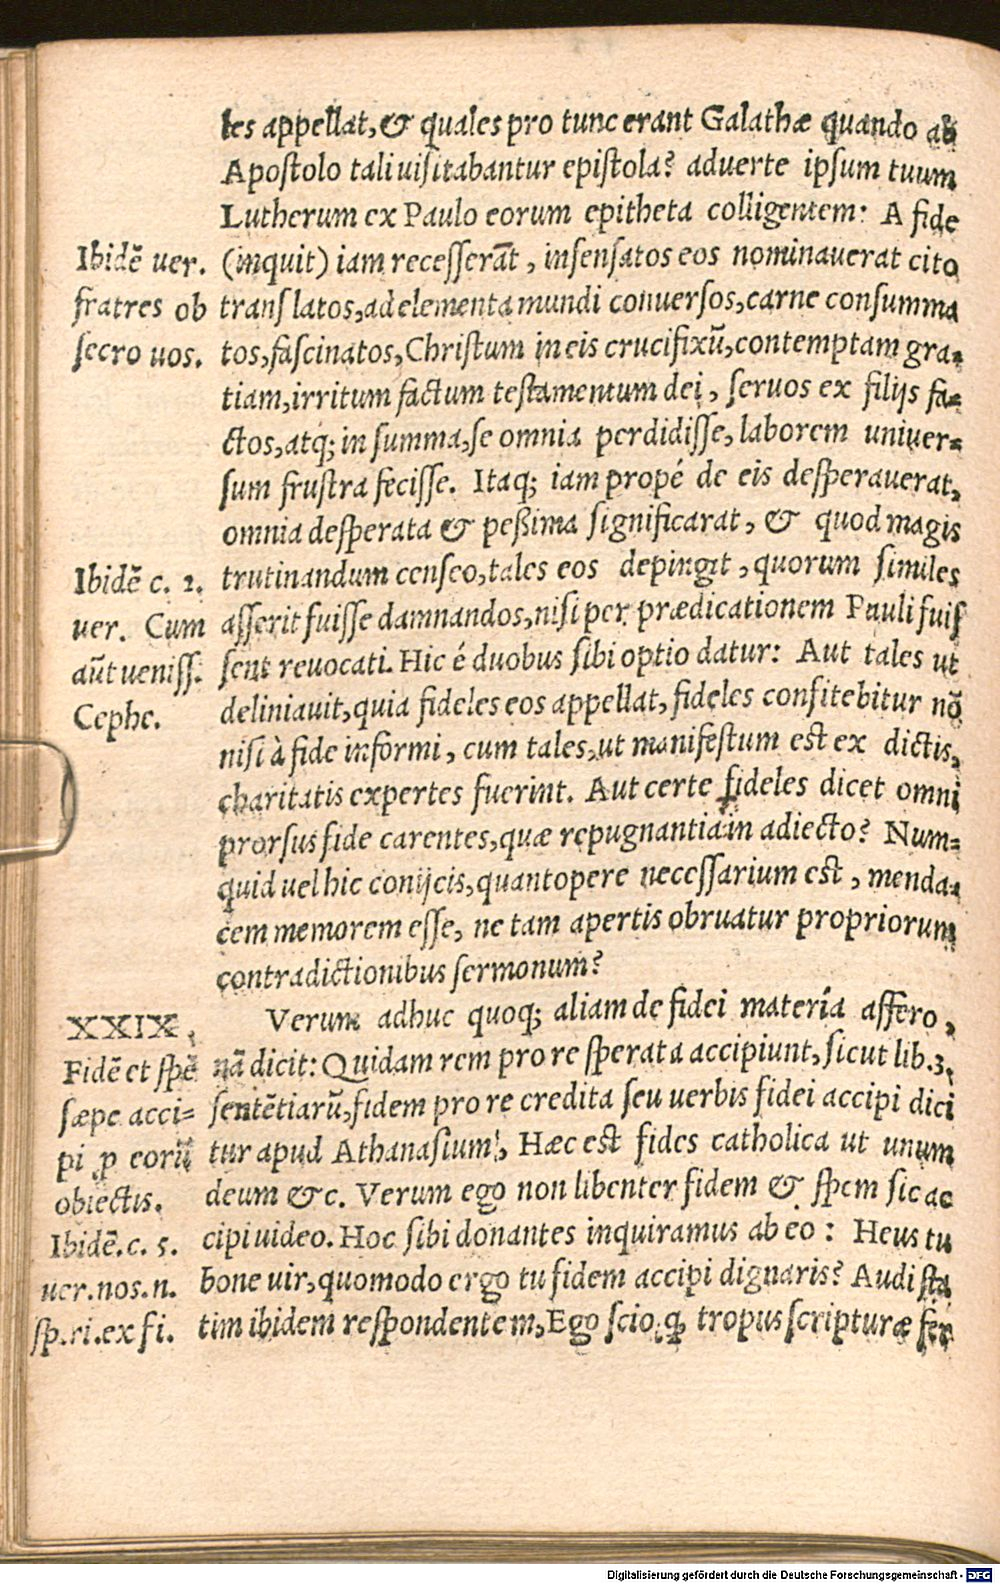 les appellat, & quales pro tunc erant Galathæ quando ab
Apostolo tali uisitabantur epistola? aduerte ipsum tuum
Lutherum ex Paulo eorum epitheta colligentem: A fide
Ibidē uer.
(inquit) iam recesserāt, insensatos eos nominauerat cito
fratres ob
translatos, ad elementa mundi conuersos, carne consumma
secro uos.
tos, fascinatos, Christum in eis crucifixū, contemptam gra=
tiam, irritum factum testamentum dei, seruos ex filijs fa=
ctos, atq; in summa, se omnia perdidisse, laborem uniuer=
sum frustra fecisse. Itaq; iam propé de eis desperauerat,
omnia desperata & peßima significarat, & quod magis
Ibidē c. 2.
trutinandum censeo, tales eos depingit, quorum similes
uer. Cum
asserit fuisse damnandos, nisi per prædicationem Pauli fuis
aūt ueniss.
sent reuocati. Hic é duobus sibi optio datur: Aut tales ut
Cephe.
deliniauit, quia fideles eos appellat, fideles confitebitur nō
nisi à fide informi, cum tales, ut manifestum est ex dictis,
charitatis expertes fuerint. Aut certe fideles dicet omni
prorsus fide carentes, quæ repugnantia in adiecto? Num=
quid uel hic conijcis, quantopere necessarium est, menda=
cem memorem esse, ne tam apertis obruatur propriorum
contradictionibus sermonum?
XXIX.
Verum adhuc quoq; aliam de fidei materia assero,
Fidē et spē
nā dicit: Quidam rem pro re sperata accipiunt, sicut lib. 3.
sæpe acci=
sentētiarū, fidem pro re credita seu uerbis fidei accipi dici
pi p eorū
tur apud Athanasium, Hæc est fides catholica ut unum
obiectis.
deum &c. Verum ego non libenter fidem & spem sic ac
Ibidē. c. 5.
cipi uideo. Hoc sibi donantes inquiramus ab eo: Heus tu
uer. nos. n.
bone uir, quomodo ergo tu fidem accipi dignaris? Audi sta
sp. ri. ex fi.
tim ibidem respondentem, Ego scio, q tropus scripturæ fer
Digitalisierung gefördert durch die Deutsche Forschungsgemeinschaft - DFG